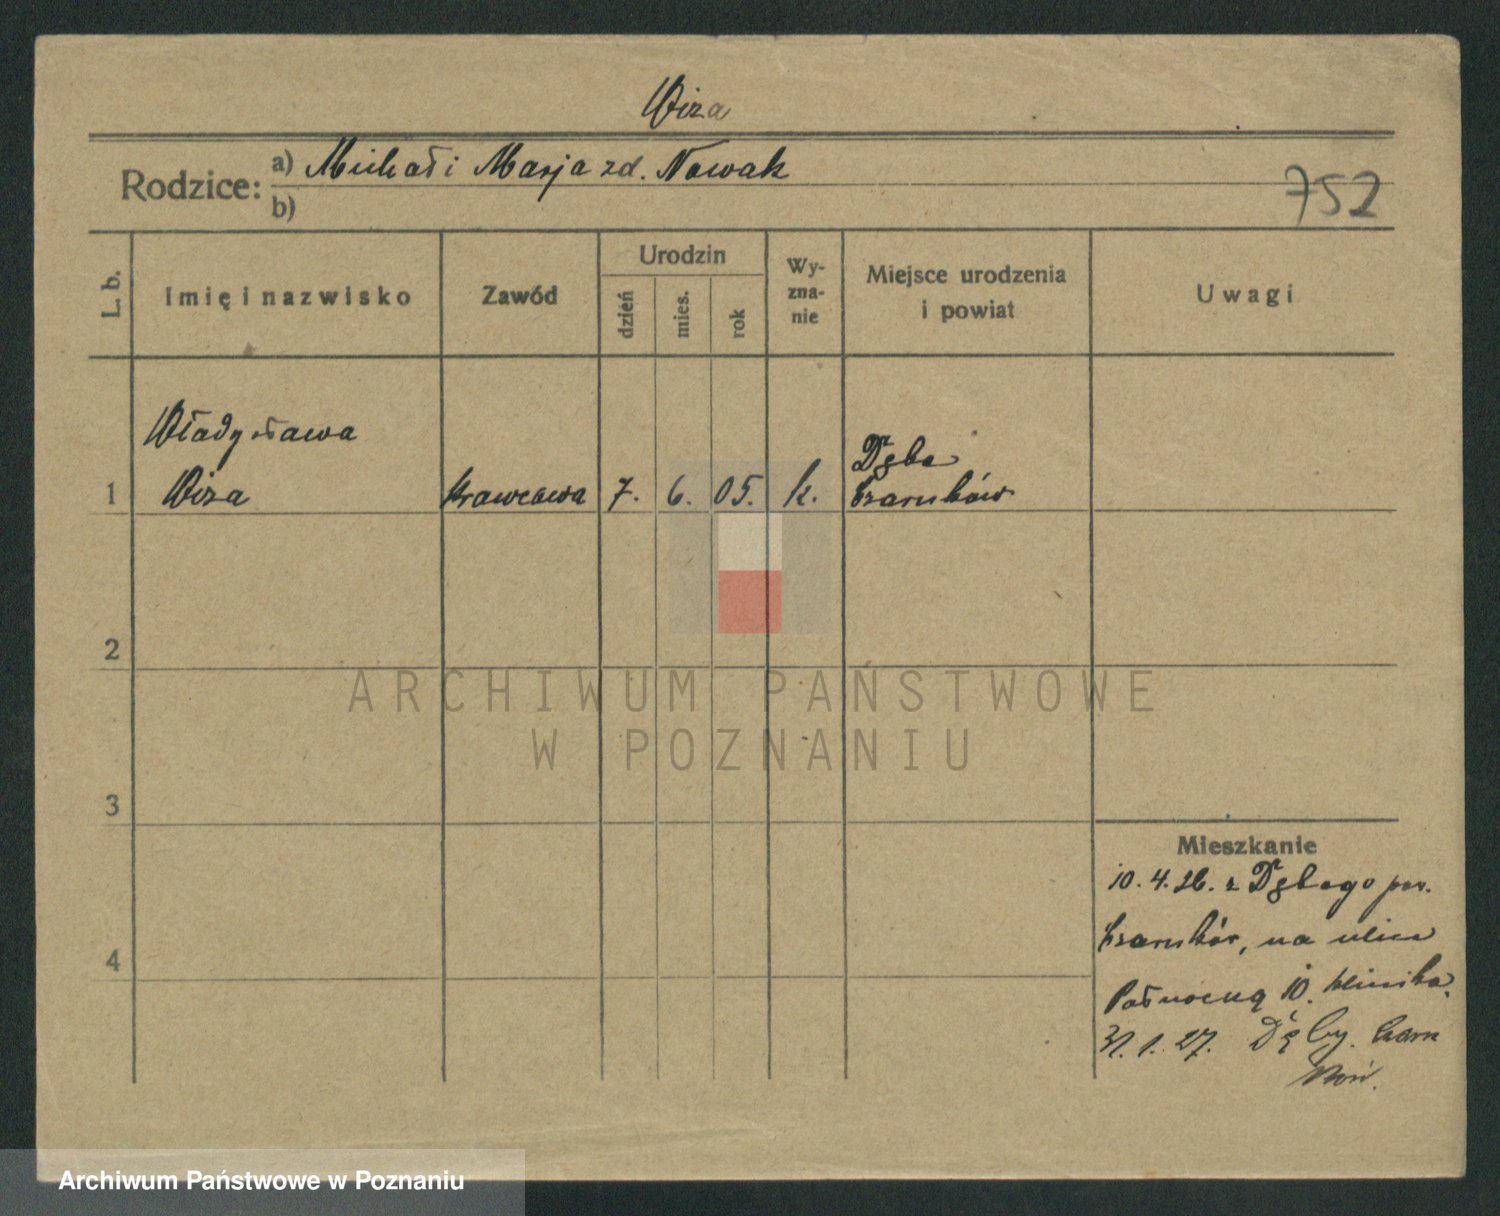 Wiza
Rodzice:
a) Michał i Marja zd. Nowak
b)
752
L. b.
Imię i nazwisko
Zawód
Urodzin
dzień
mies.
rok
Wy-
zna-
nie
Miejsce urodzenia
i powiat
Uwagi
Władysława
1 Wiza krawcowa 7. 6. 05. k. Dębe
Czarnków
2
ARCHIWUM PAŃSTWOWE
W POZNANIU
3
Mieszkanie
10.4.26. z Dębego pow.
Czarnków, na ulicę
4
Północną 10.
31.1.27. Czarn
ków.
Archiwum Państwowe w Poznaniu